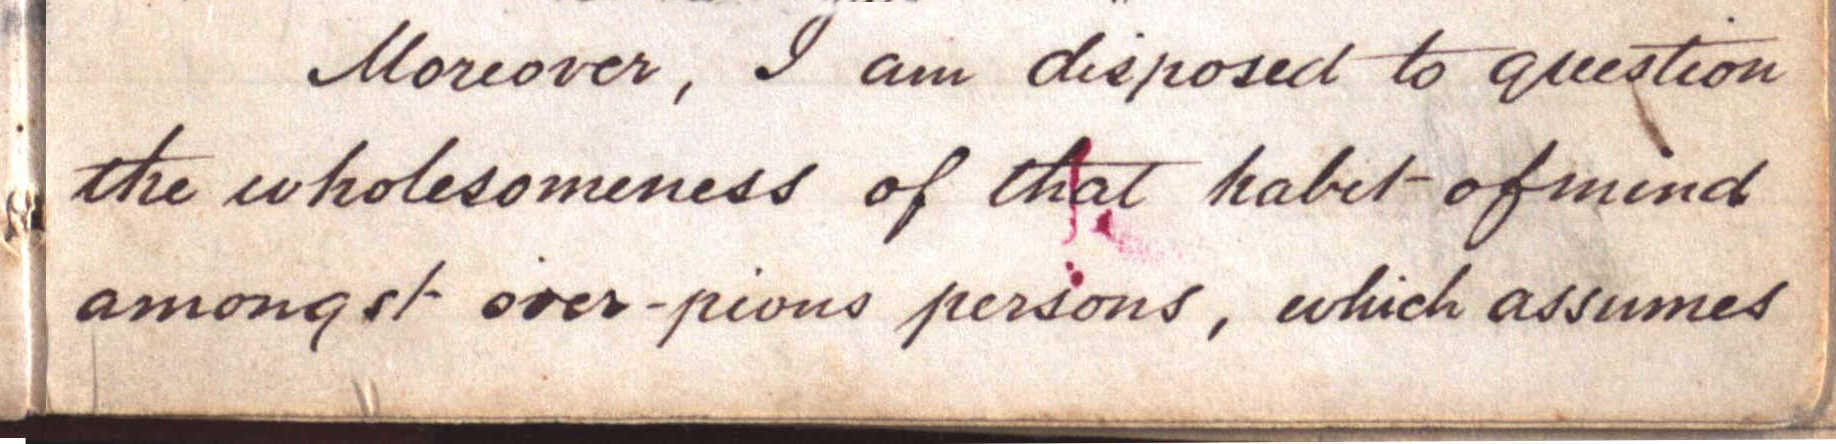 Moreover, I am disposed to question
the wholesomeness of that habit of mind
amongst over-pious persons, which assumes